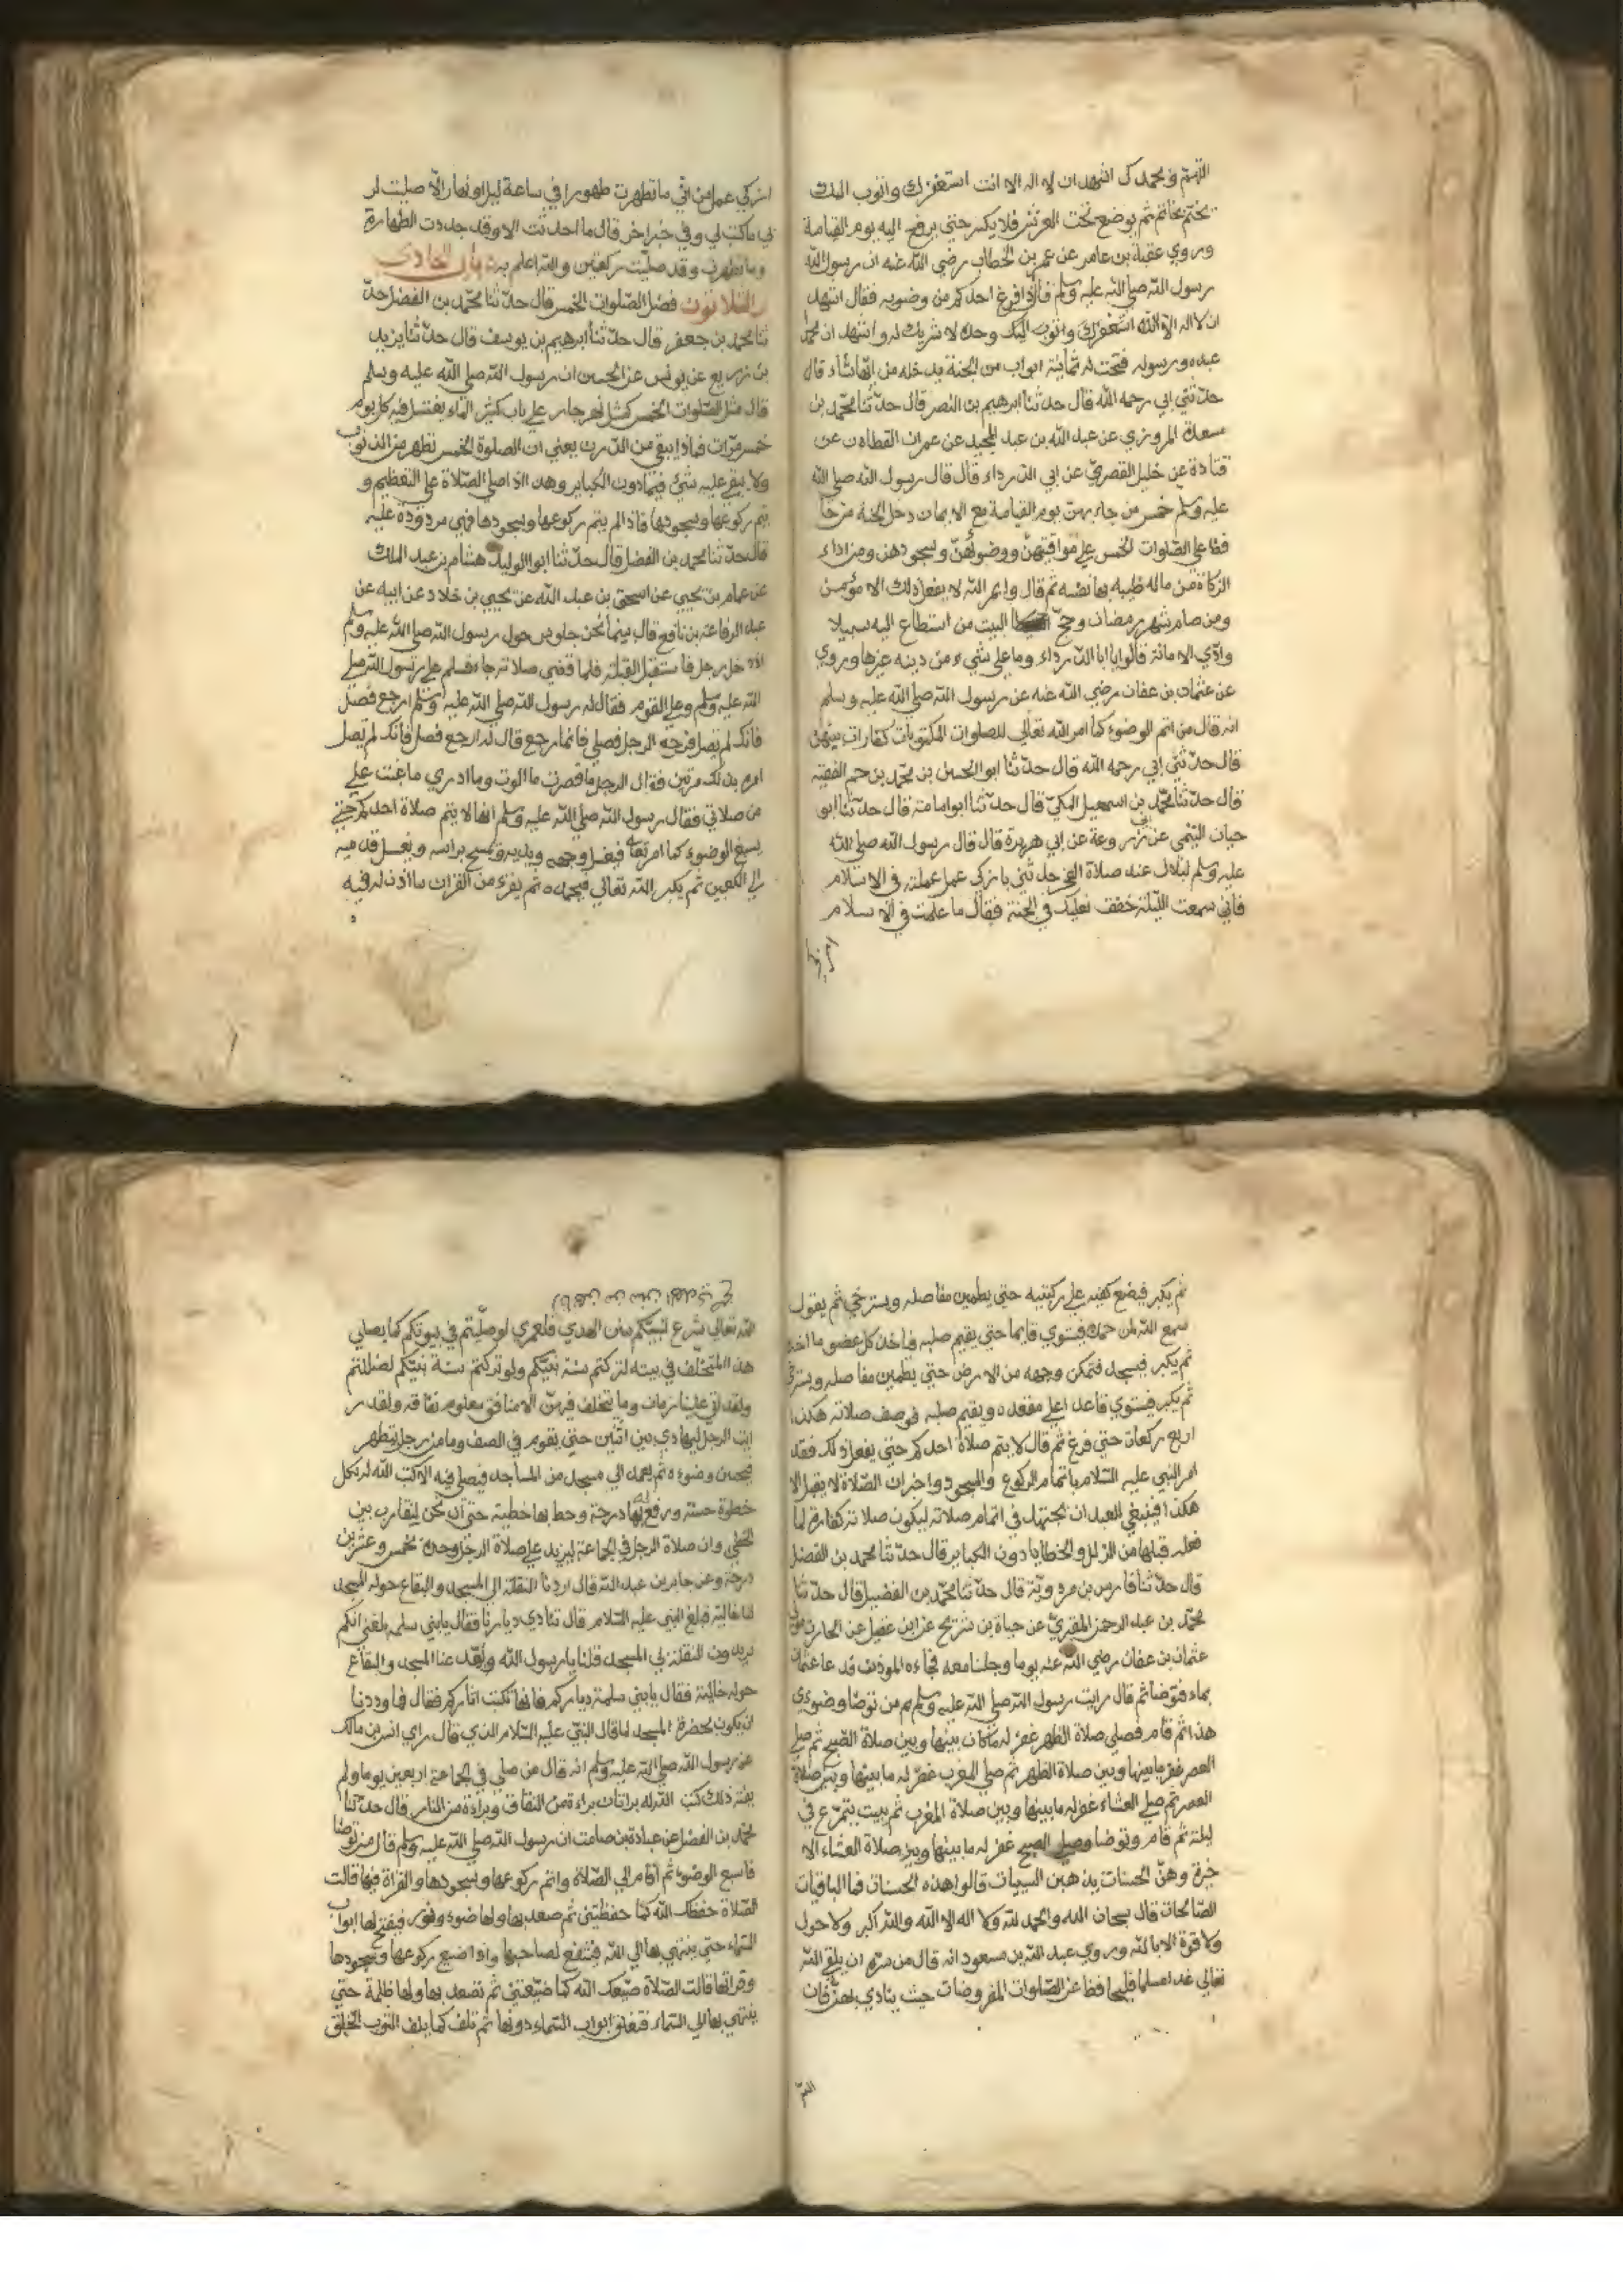 اللهم وبحمدك اشهد ان لا اله الا انت استغفرك واتوب اليك
يختم بخاتم ثم يوضع تحت العرش فلا يكسر حتى يرفع اليه يوم القيامة
وروي عقبة بن عامر عن عمر بن الخطاب رضي الله عنه ان رسول الله
رسول الله صلي الله عليه وسلم قال اذا فرغ احدكم من وضويه فقال اشهد
ان لا اله الا الله استغفرك واتوب اليك وحده لا شريك له واشهد ان محمدا
عبده ورسوله فتحت له ثمانية ابواب من الجنة يدخله من ايها شاء قال
حدثني ابي رحمه الله قال حدثنا ابرهيم بن النصر قال حدثنا محمد بن
سعدة المروزي عن عبد الله بن عبد المجيد عن عمران القطان عن
قتادة عن خليل القصري عن ابي الدرداء قال قال رسول الله صلي الله
عليه وسلم خمس من جاء بهن يوم القيامة مع الايمان دخل الجنة من حا
فظ علي الصلوات الخمس علي مواقيتهن ووضوئهن وسجودهن ومن اداء
الزكاة من ماله طيبه بها نفسه ثم قال وايم الله لا يفعل ذلك الا مؤمن
ومن صام شهر رمضان وحج البيت من استطاع اليه سبيلا
وادي الامانة قالوا يا ابا الدرداء وما علي شيء من دينه غيرها وروي
عن عثمان بن عفان رضي الله عنه عن رسول الله صلي الله عليه وسلم
انه قال من اتم الوضوء كما امر الله تعالي للصلوات المكتوبات كفارات لما بينهن
قال حدثني ابي رحمه الله قال حدثنا ابو الحسن بن محمد بن حم الفقيه
قال حدثنا محمد بن اسمعيل المكي قال حدثنا ابو امامة قال حدثنا ابو
حيان التيمي عن ابي زروعة عن ابي هريرة قال قال رسول الله صلي الله
عليه وسلم لبلال عند صلاة الفجر حدثني بازكي عمل عملته في الاسلام
فاني سمعت الليلة خفف نعليك في الجنة فقال ما علمت في الاسلام
ازكي عمل من اني ما تطهرت طهورا في ساعة ليل او نهار الا صليت لر
بي ما كتب لي وفي خبر اخر قال ما احدثت الا وقد جددت الطهارة
وما تطهرت وقد صليت ركعتين والله اعلم به باب الحادي
والثلاثون فضل الصلوات الخمس قال حدثنا محمد بن الفضل حد
ثنا محمد بن جعفر قال حدثنا ابرهيم بن يوسف قال حدثنا يزيد
بن زريع عن يونس عن الحسن ان رسول الله صلي الله عليه وسلم
قال مثل الصلوات الخمس كمثل نهر جار علي باب كثير الماء يغتسل فيه كل يوم
خمس مرات فماذا يبقي من الدرن يعني ان الصلوة الخمس تطهر من الذنوب
ولا يبقي عليه شيء فيما دون الكباير وهذا اذا صلي الصلاة علي التعظيم و
يتم ركوعها وسجودها فاذا لم يتم ركوعها وسجودها فهي مردودة عليه
قال حدثنا محمد بن الفضل قال حدثنا ابو الوليد هشام بن عبد الملك
عن همام بن يحيي عن اسحق بن عبد الله عن يحيي بن خلاد عن ابيه عن
عبد الرفاعة بن نافع قال بينما نحن جلوس حول رسول الله صلي الله عليه وسلم
اذ دخل رجل فاستقبل القبلة فلما قضي صلاته جاء فسلم علي رسول الله صلي
الله عليه وسلم وعلي القوم فقال له رسول الله صلي الله عليه وسلم ارجع فصل
فانك لم تصل فرجع الرجل فصلي فانما رجع قال له ارجع فصل فانك لم تصل
امره بذلك مرتين فقال الرجل ما قصرت ما الوت وما ادري ما عبت علي
من صلاتي فقال رسول الله صلي الله عليه وسلم انها لا يتم صلاة احدكم حتي
يسبغ الوضوء كما امر تعا فيغسل وجهه ويديه ويمسح براسه ويغسل قدميه
الي الكعبين ثم يكبر الله تعالي فيحمده ثم يقرء من القران ما اذن له فيه
ثم يكبر فيضع كفيه علي ركبتيه حتي يطمين مفاصله ويسترخي ثم يقول
سمع الله لمن حمده فيستوي قايما حتي يقيم صلبه فياخذ كل عضو ماخذه
ثم يكبر فيسجد فتمكن وجهه من الارض حتي يطمين مفاصله ويسترخي
ثم يكبر فيستوي قاعدا علي مقعده ويقيم صلبه فوصف صلاته هكذا
اربع ركعات حتي فرغ ثم قال لا يتم صلاة احدكم حتي يفعل ذلك فقد
امر النبي عليه السلام باتمام الركوع والسجود واخبر ان الصلاة لا يقبل الا
هكذا فينبغي العبد ان يجتهد في اتمام صلاته ليكون صلاته كفارة لما
فعله قبلها من الزلل والخطايا دون الكباير قال حدثنا محمد بن الفضل
قال حدثنا فارس بن مردوية قال حدثنا محمد بن الفضيل قال حدثنا
محمد بن عبد الرحمن المقري عن حياة بن شريح عن ابن عقيل عن الحارث مولي
عثمان بن عفان رضي الله عنه يوما وجلسنا معه فجاءه الموذن فدعا عثمان
بماء فتوضا ثم قال رايت رسول الله صلي الله عليه وسلم من توضا وضوءي
هذا ثم قام فصلي صلاة الظهر غفر له ما كان بينها وبين صلاة الصبح ثم صلي
العصر غفر ما بينها وبين صلاة الظهر ثم صلي المغرب غفر له ما بينها وبين صلاة
العصر ثم صلي العشاء غفر له ما بينها وبين صلاة المغرب ثم يبيت يتمرغ في
ليلته ثم قام وتوضا وصلي الصبح غفر له ما بينها وبين صلاة العشاء الا
خرة وهن الحسنات يذهبن السيات قالوا هذه الحسنات فما الباقيات
الصالحات قال سبحان الله والحمد لله ولا اله الا الله والله اكبر ولا حول
ولا قوة الا بالله وروي عبد الله بن مسعود انه قال من سره ان يلق الله
تعالي غدا مسلما فليحافظ عن الصلوات المفروضات حيث ينادي بهن فان
الله
الله تعالي شرع لنبيكم سنن الهدي فلعمري لو صليتم في بيوتكم كما يصلي
هذا المتخلف في بيته لتركتم سنة نبيكم ولو تركتم سنة نبيكم لضللتم
ولقد اتي علينا زمان وما يتخلف فيهن الا منافق معلوم نفاقه ولقد ر
ايت الرجل ليهادي بين اثنين حتي يقوم في الصف وما من رجل يتطهر
فيحسن وضوءه ثم يعمد الي مسجد من المساجد فيصلي فيه الا كتب الله له بكل
خطوة حسنة ورفع له بها درجة وحط بها خطية حتي ان نحن لنقارب بين
الخطي وان صلاة الرجل في الجماعة ليزيد علي صلاة الرجل وحده بخمس وعشرين
درجة وعن جابر بن عبد الله قال اردنا النقلة الي المسجد والبقاع حوله المسجد
لنا خالية فبلغ النبي عليه السلام قال تنادي ديارنا فقال يا بني سلمة بلغني انكم
تريدون النقلة الي المسجد قلنا يا رسول الله وبعد عنا المسجد والبقاع
حوله خالية فقال يا بني سلمة دياركم فانها تكتب اثاركم فقال فما وددنا
ان يكون بحضرة المسجد لما قال النبي عليه السلام الذي قال راي انس بن مالك
عن رسول الله صلي الله عليه وسلم انه قال من صلي في الجماعة اربعين يوما ولم
يفته ذلك كتب الله له براتان براءة من النفاق وبراءة من النار قال حدثنا
محمد بن الفضل عن عبادة بن صامت ان رسول الله صلي الله عليه وسلم قال من توضا
فاسبغ الوضوء ثم اقام الي الصلاة واتم ركوعها وسجودها والقراة فيها قالت
الصلاة حفظك الله كما حفظتني ثم صعد بها ولها ضوء ونور فيفتح لها ابواب
السماء حتي ينتهي بها الي الله فتشفع لصاحبها واذا ضيع ركوعها وسجودها
وقراتها قالت الصلاة ضيعك الله كما ضيعتني ثم تصعد بها ولها ظلمة حتي
ينتهي بها الي السماء فتغلق ابواب السماء دونها ثم تلف كما يلف الثوب الخلق